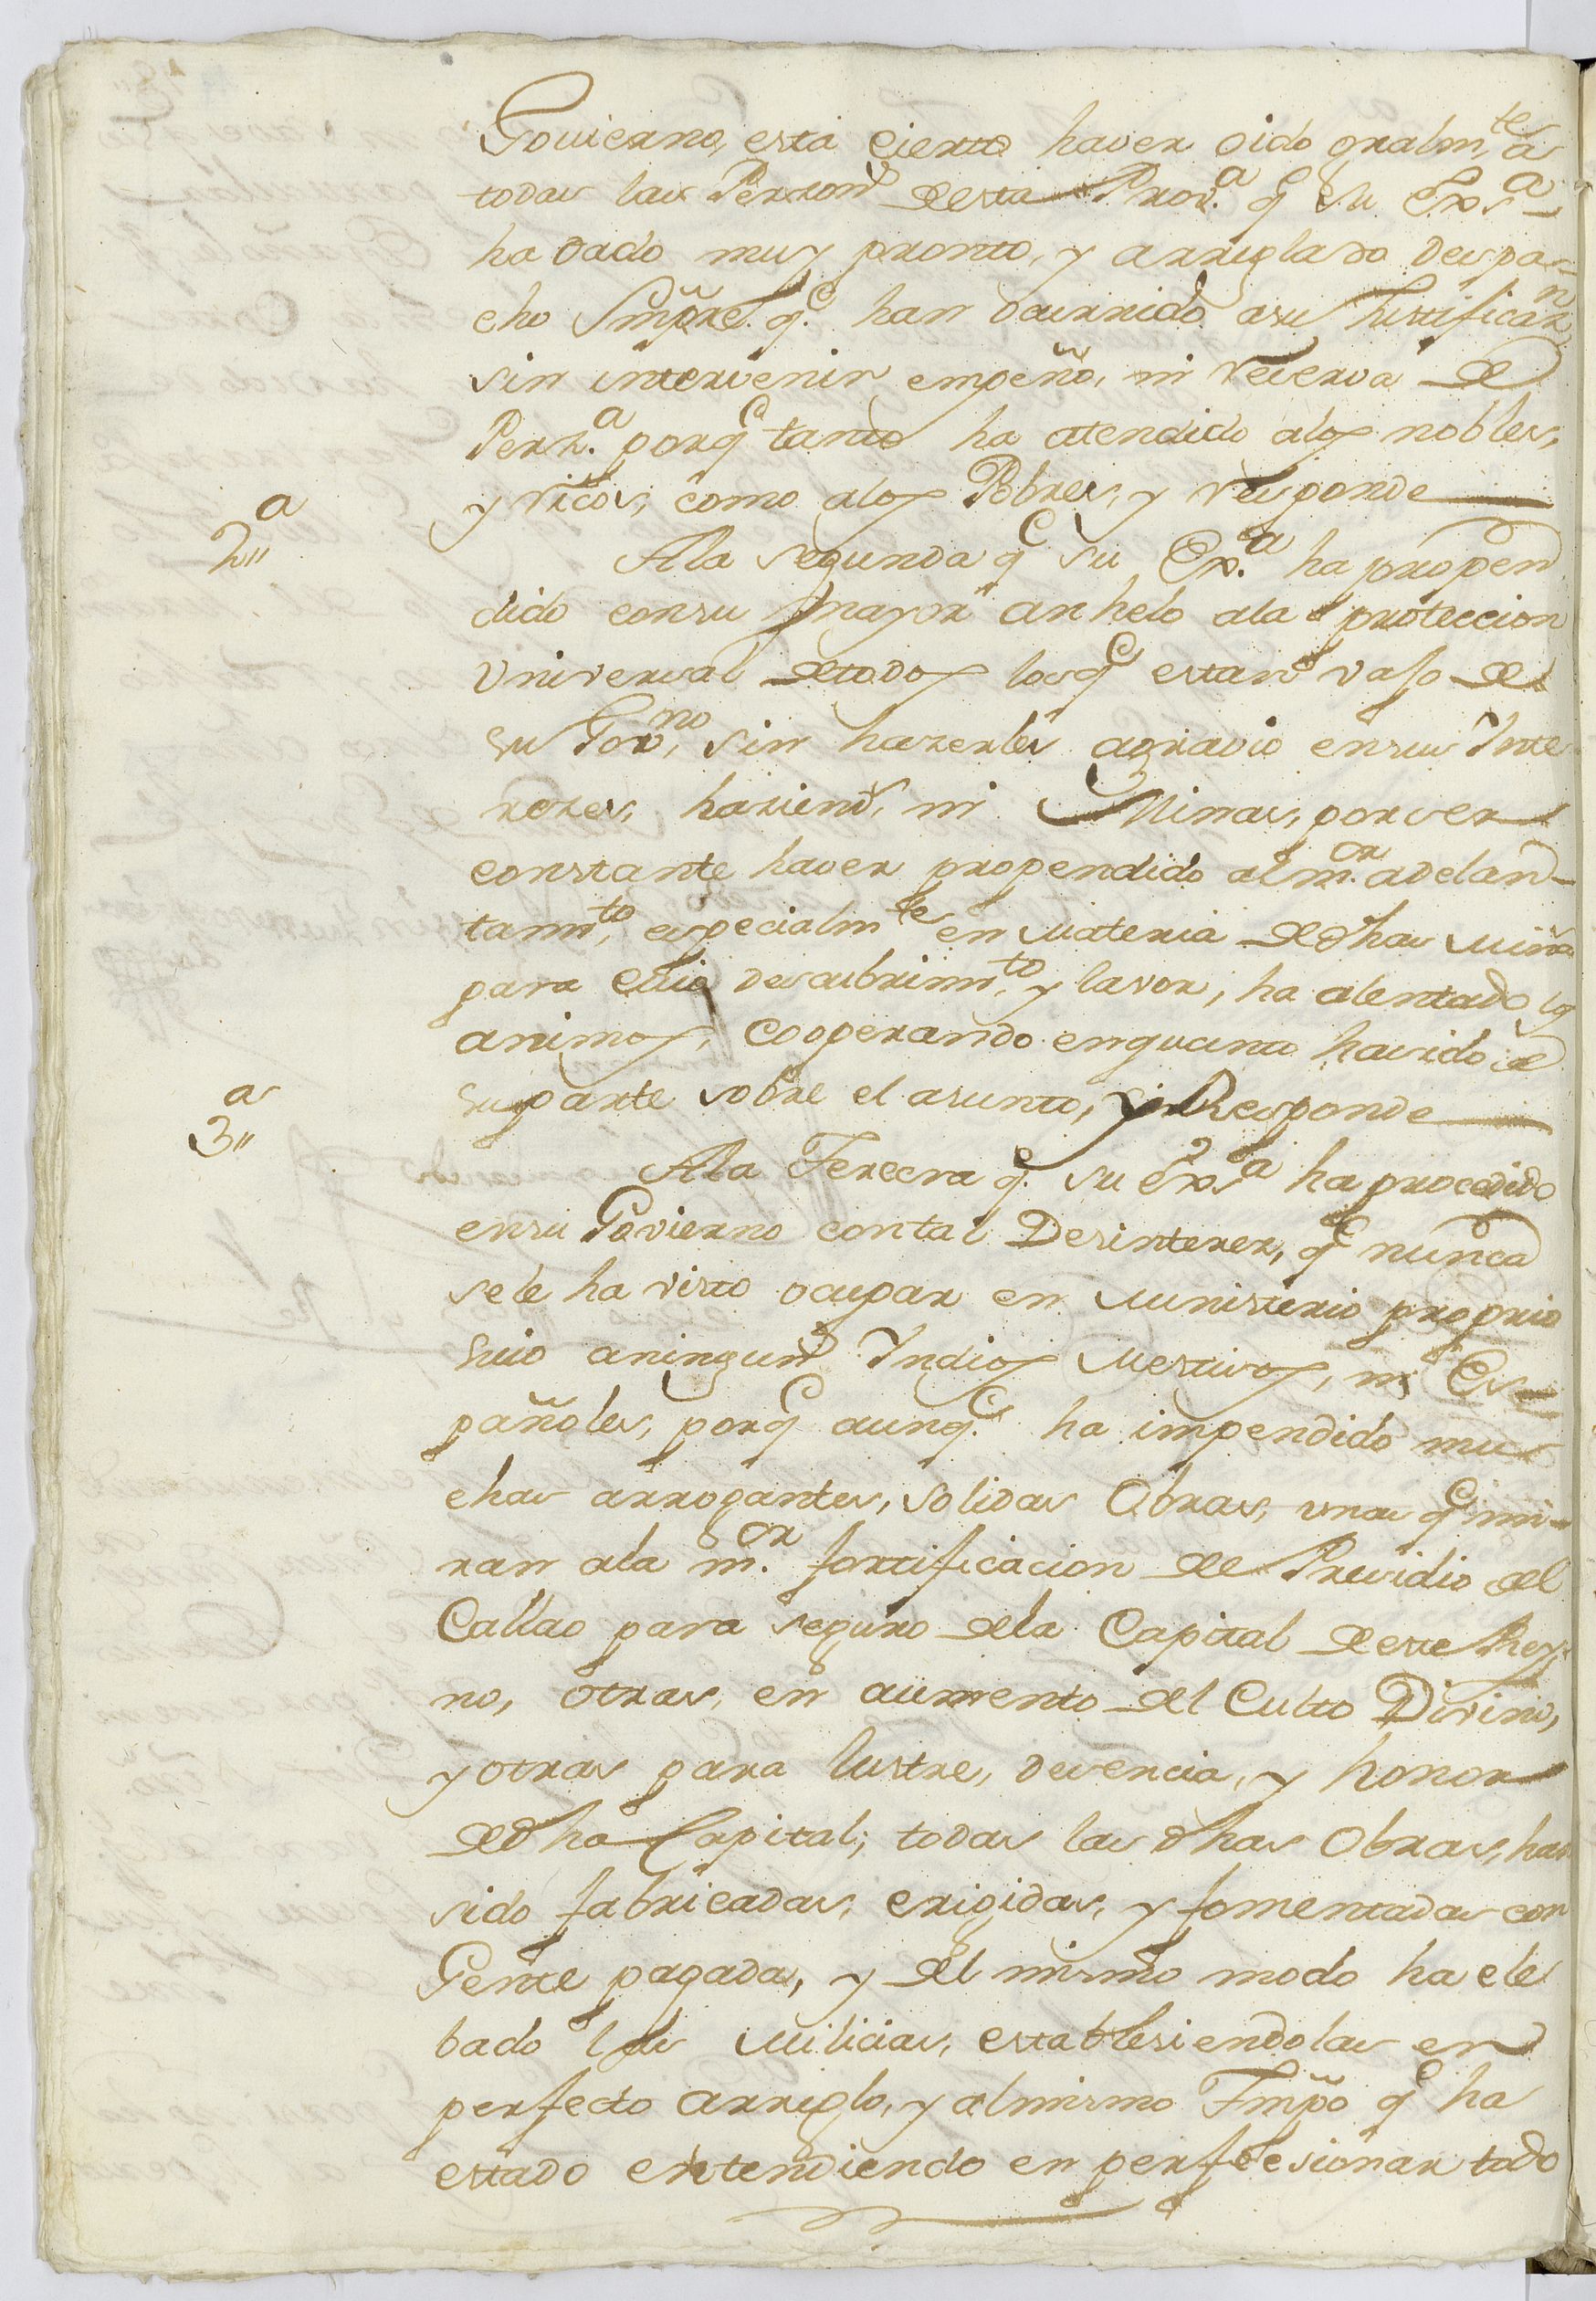 Govierno, esta cierto haver oido gralm.te a
todas las Person.s desta Prov.a q.e su Ex.a
ha dado muy pronto, y arreglado despa-
cho Smpre. q.e han ocurrido asu Justificaz.n
sin intervenir empeño, ni reserva de
Perz.a porq.e tanto ha atendido alos nobles,
y ricos, como alos Pobres, y responde
2.a
Ala segunda q.e su Ex.a ha propen
dido consu mayor anhelo ala proteccion
Universal detodos losq.e estan vajo de
su Gov.no, sin hazerles agravio ensus Inte
rezes, haziend.s ni Minas, porser
constante haver propendido alm.or adelan-
tam.to, especialm.te en materia dedhas Minas
para cuio descubrim.to y lavor, ha alentado los
animos, cooperando enquanto hasido de
suparte sobre el asunto, y Responde
3.a
Ala Tercera q.e su Ex.a ha procedido
ensu Govierno contal Desinterez, q.e nunca
sele ha visto ocupar en ministerio proprio
suio aningun.s Indios Mestisos, ni Es-
pañoles, porq.e aunq.e ha impendido mu
chas arrogantes, solidas Obras, unas q.e mi-
ran ala m.or fortificacion de Presidio del
Callao para seguro dela Capital deeste Rey-
no, otras, en aumento del Culto Divino,
y otras para lustre, desencia, y honor
dedha Capital; todas las dhas Obras, han
sido fabricadas, erigidas, y fomentadas con
Gente pagada, y del mismo modo ha ele
bado las Milicias, establesiendolas en
perfecto arreglo, y almismo Tmpo q.e ha
estado entendiendo en perfecsionar todo